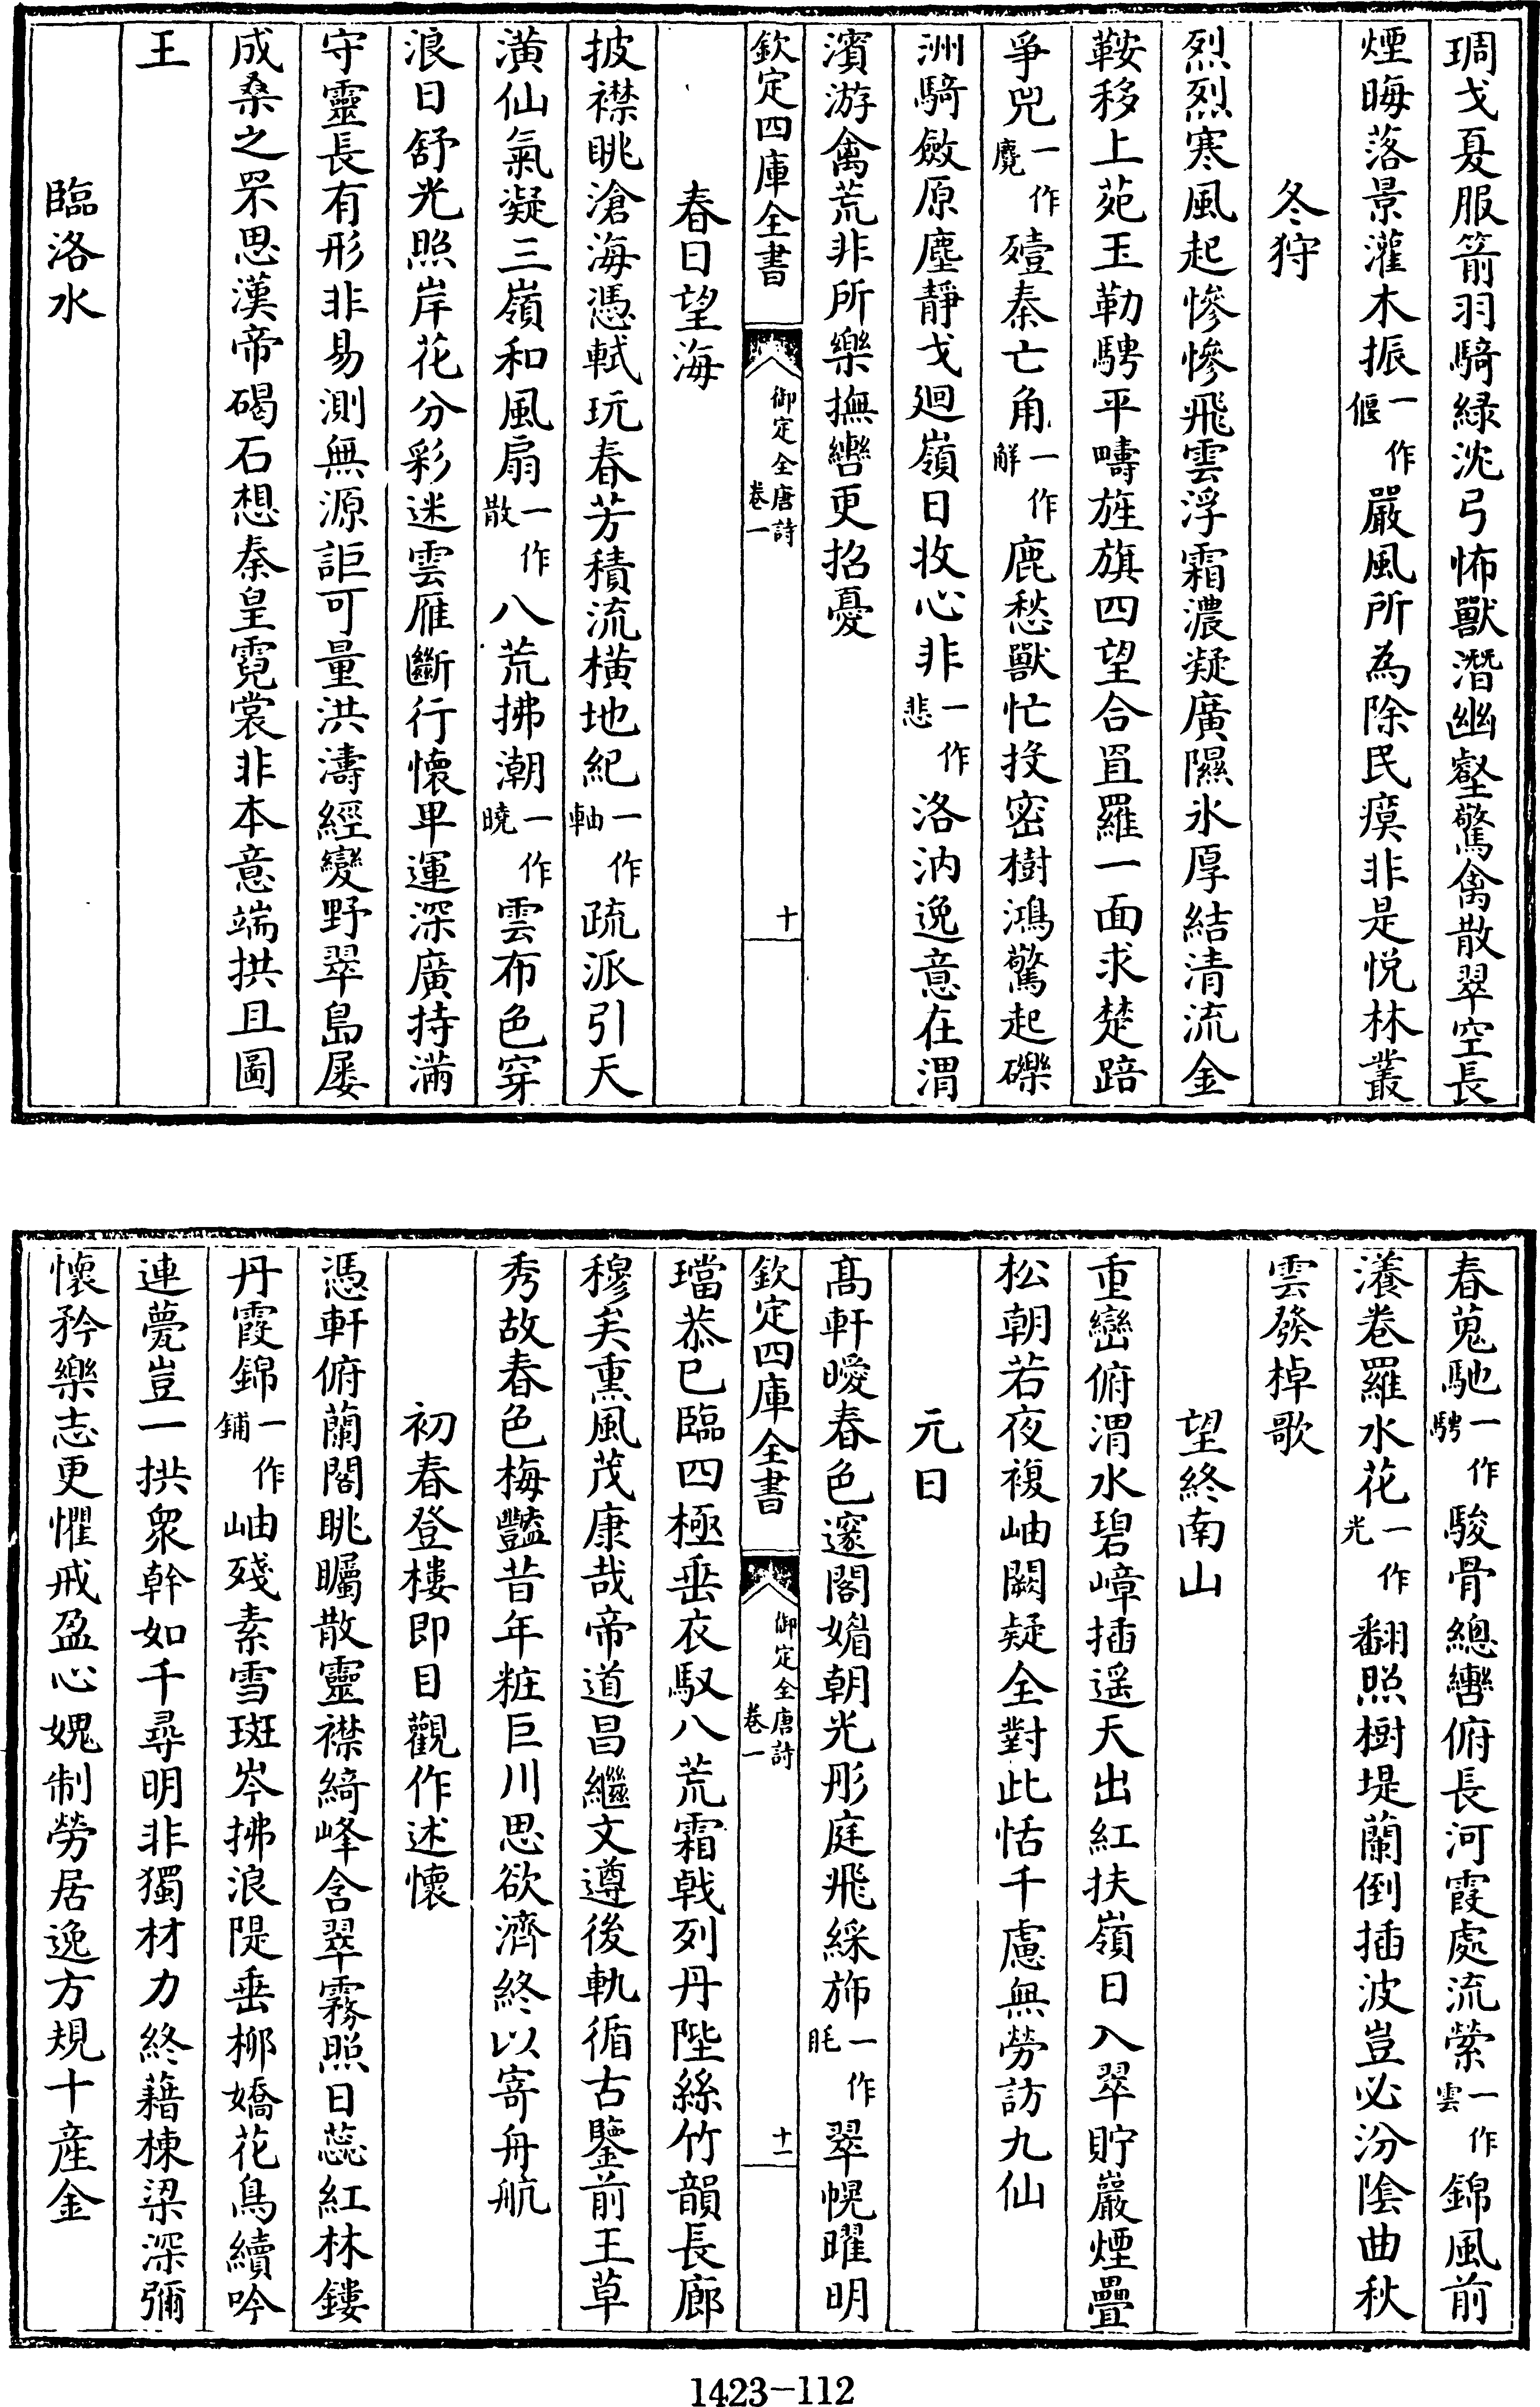 琱戈夏服箭羽騎緑沈弓怖獸潛幽壑驚禽散翠空長
煙晦落景灌木振一作偃嚴風所為除民瘼非是悦林叢
冬狩
烈烈寒風起慘慘飛雲浮霜濃凝廣隰氷厚結清流金
鞍移上苑玉勒騁平疇旌旗四望合罝羅一面求楚踣
爭兕一作麑殪秦亡角一作解鹿愁獸忙投密樹鴻驚起礫
洲騎斂原塵靜戈廻嶺日收心非一作悲洛汭逸意在渭
濱游禽荒非所樂撫轡更招憂
欽定四庫全書
御定全唐詩
卷一
十
春日望海
披襟眺滄海憑軾玩春芳積流横地紀一作軸疏派引天
潢仙氣凝三嶺和風扇一作散八荒拂潮一作曉雲布色穿
浪日舒光照岸花分彩迷雲雁斷行懷卑運深廣持滿
守靈長有形非易測無源詎可量洪濤經變野翠島屡
成桑之罘思漢帝碣石想秦皇霓裳非本意端拱且圖
王
臨洛水
春蒐馳一作騁駿骨總轡俯長河霞處流縈一作雲錦風前
瀁卷羅水花一作光翻照樹堤蘭倒插波豈必汾陰曲秋
雲發棹歌
望終南山
重巒俯渭水碧嶂插遥天出紅扶嶺日入翠貯巖煙疊
松朝若夜複岫闕疑全對此恬千慮無勞訪九仙
元日
髙軒曖春色邃閣媚朝光彤庭飛綵斾一作眊翠幌曜明
欽定四庫全書
御定全唐詩
卷一
十一
璫恭已臨四極垂衣馭八荒霜戟列丹陛絲竹韻長廊
穆矣熏風茂康哉帝道昌繼文遵後軌循古鑒前王草
秀故春色梅豔昔年粧巨川思欲濟終以寄舟航
初春登樓即目觀作述懷
憑軒俯蘭閣眺矚散靈襟綺峰含翠霧照日蕊紅林鏤
丹霞錦一作鋪岫殘素雪斑岑拂浪隄垂柳嬌花鳥續吟
連甍豈一拱衆幹如千尋明非獨材力終藉棟梁深彌
懷矜樂志更懼戒盈心媿制勞居逸方規十産金
1423-112